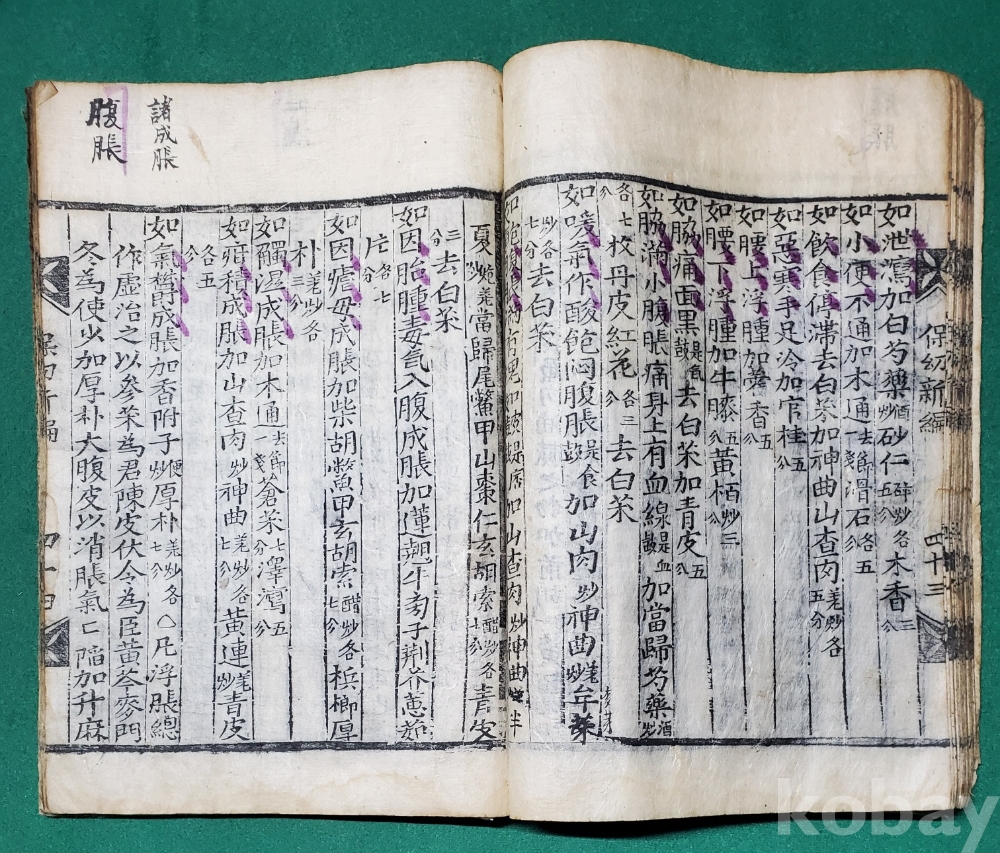 如泄瀉加白芍藥酒炒砂仁碎炒各五分木香三分
如小便不通加木通去節一錢滑石各五分
如飮食停滯去白茶加神曲山查肉羌炒各五分
如惡寒手足冷加官桂五分
如腰上浮腫加藿香五分
如腰下浮腫加牛膝五分黃栢炒三分
如脇痛面黑是氣鼓去白茶加青皮五分
如脇滿小腹脹痛身上有血線是血鼓加當歸芍藥酒炒
各七分牧丹皮紅花各三分去白茶
如噯氣作酸飽悶腹脹是食鼓加山肉炒神曲羌炒牟茶
炒各七分去白茶
加山查肉炒神曲炒半
保幼新編
四十三
諸成脹
腹脹
夏炒羌當歸尾鱉甲山棗仁玄胡索醋炒各七分青皮
三分去白茶
如因胎腫毒氣入腹成脹加蓮翹牛旁子荆芥蔥
片各七分
如因瘧母成脹加柴胡鱉甲玄胡索醋炒各七分梹榔厚
朴羌炒各三分
如觸濕成脹加木通去節一錢蒼茶七分澤瀉五分
如疳積成脹加山查肉炒神曲羌炒各七分黃連羌炒青皮
各五分
如氣欝成脹加香附子便炒厚朴羌炒各七分○凡浮脹總
作虛治之以參茶爲君陳皮伏令爲臣黃芩麥門
冬爲使少加厚朴大腹皮以消脹氣亡陷加升麻
保幼新編
四十四
kobay